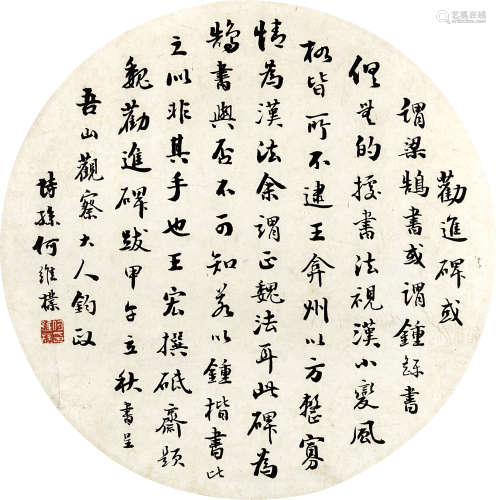 勸進碑或
謂梁鵠書或謂鍾繇書
但無的據書法視漢小變風
格皆所不逮王弇州以方整寡
情為漢法余謂正魏法耳此碑為
鵠書與否不可知若以鍾楷書比
之似非其手也王宏撰砥齋題
魏勸進碑跋甲午立秋書呈
吾山觀察大人鈞政
詩孫何維樸
艺典中国